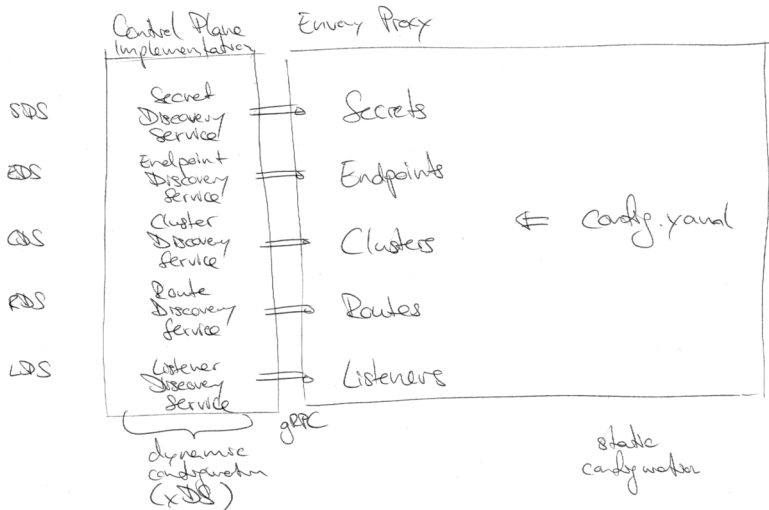 Control Plane
Implementation
Envoy Proxy
SDS
Secret
Discovery
Service
Secrets
EDS
Endpoint
Discovery
Service
Endpoints
CDS
Cluster
Discovery
Service
Clusters
config.yaml
RDS
Route
Discovery
Service
Routes
LDS
Listener
Discovery
Service
Listeners
gRPC
dynamic
configuration
(xDS)
static
configuration